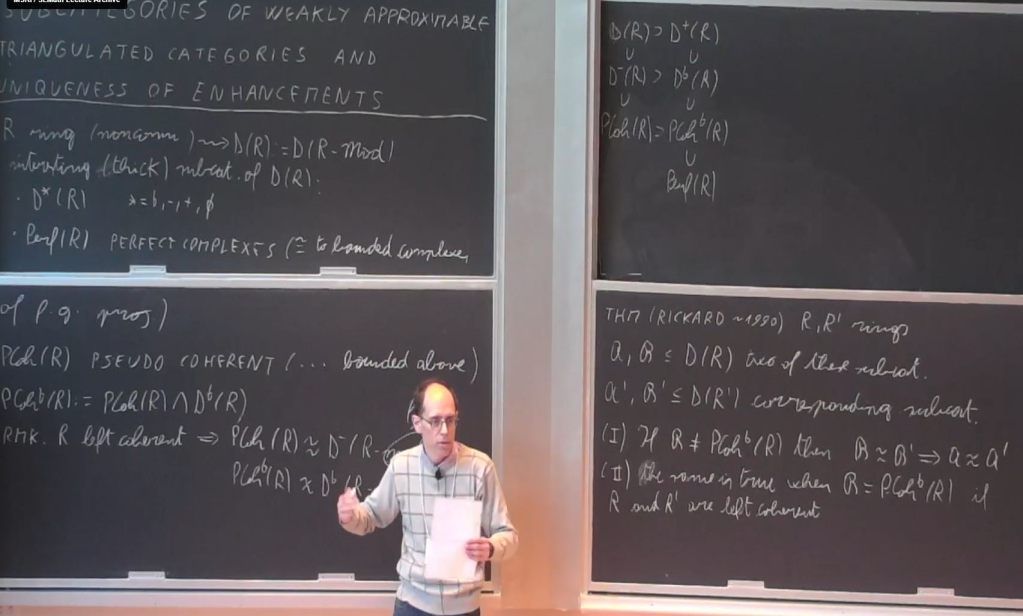 SUBCATEGORIES OF WEAKLY APPROXIMABLE
TRIANGULATED CATEGORIES AND
UNIQUENESS OF ENHANCEMENTS
R ring (noncomm) ⇝ D(R) := D(R-Mod)
interesting (thick) subcat. of D(R):
· D*(R) * = b, -, +, ∅
· Perf(R) PERFECT COMPLEXES (≅ to bounded complexes
of p.g. proj)
PCoh(R) PSEUDO COHERENT (... bounded above)
PCohᵇ(R) := PCoh(R) ∩ Dᵇ(R)
RMK. R left coherent ⇒ PCoh(R) ≈ D⁻(R-
PCohᵇ(R) ≈ Dᵇ(R-
D(R) ⊃ D⁺(R)
∪ ∪
D⁻(R) ⊃ Dᵇ(R)
∪ ∪
PCoh(R) ⊃ PCohᵇ(R)
∪
Perf(R)
THM (RICKARD ~1990) R, R' rings
a, B ⊆ D(R) two of these subcat.
a', B' ⊆ D(R') corresponding subcat.
(I) If B ≠ PCohᵇ(R) then B ≈ B' ⇒ a ≈ a'
(II) The same is true when B = PCohᵇ(R) if
R and R' are left coherent